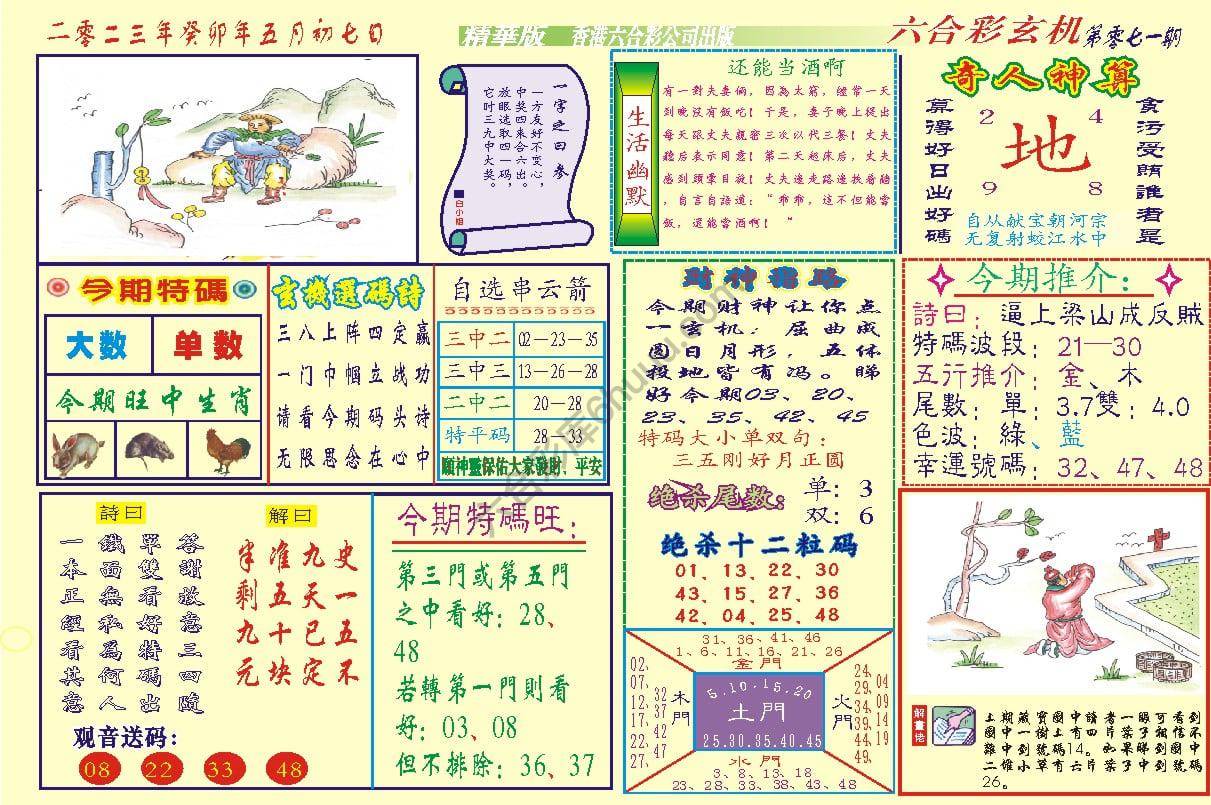 二零二三年癸卯年五月初七日
精華版 香港六合彩公司出版
六合彩玄机 第零七一期
一字之曰参
一方友好不变心，
中奖四来合六出。
放眼选取四一码，
它时三九中大奖。
白小姐
生活幽默
还能当酒啊
有一對夫妻倆，因為太窮，經常一天
到晚没有飯吃！于是，妻子晚上提出
每天跟丈夫親密三次以代三餐！丈夫
聽后表示同意！第二天起床后，丈夫
感到頭暈目旋！丈夫邊走路邊扶着牆
，自言自語道：“乖乖，這不但能當
飯，還能當酒啊！”
奇人神算
算得好日出好碼
2 4
地
9 8
自从献宝朝河宗
无复射蛟江水中
貪污受賄誰者是
今期特碼
大数 单数
今期旺中生肖
玄機選碼詩
三八上阵四定赢
一门巾帼立战功
请看今期码头诗
无限思念在心中
自选串云箭
三中二 02—23—35
三中三 13—26—28
二中二 20—28
特平码 28—33
願神靈保佑大家發財、平安
财神指路
今期财神让你点
一玄机：屈曲成
圆日月形，五体
投地皆有冯。睇
好今期03、20、
23、35、42、45
特码大小单双句：
三五刚好月正圆
绝杀尾数： 单：3
双：6
绝杀十二粒码
01、13、22、30
43、15、27、36
42、04、25、48
今期推介：
詩曰：逼上梁山成反賊
特碼波段：21—30
五行推介：金、木
尾數：單：3.7雙：4.0
色波：綠、藍
幸運號碼：32、47、48
詩曰
答謝故意三四隨
單雙看好特碼出
鐵面無私為何人
一本正經看其意
解曰
史一五不
九天已定
准五十块
半剩九元
观音送码：
08 22 33 48
今期特碼旺：
第三門或第五門
之中看好：28、
48
若轉第一門則看
好：03、08
但不排除：36、37
31、36、41、46
1、6、11、16、21、26
金門
02、
07、
12、
17、
22、
27、
32
37
42
47
木門
5.10.15.20
土門
25.30.35.40.45
火門
24、
29、
34、
39、
44、
49、
04
09
14
19
水門
3、8、13、18
23、28、33、38、43、48
解畫佬
上期藏寶圖中讀者一眼可看到
圖中一樹上有四片葉子相信不
難中到號碼14。如果睇到圖中
二堆小草有六片葉子中到號碼
26。
六合彩库6huuu.com